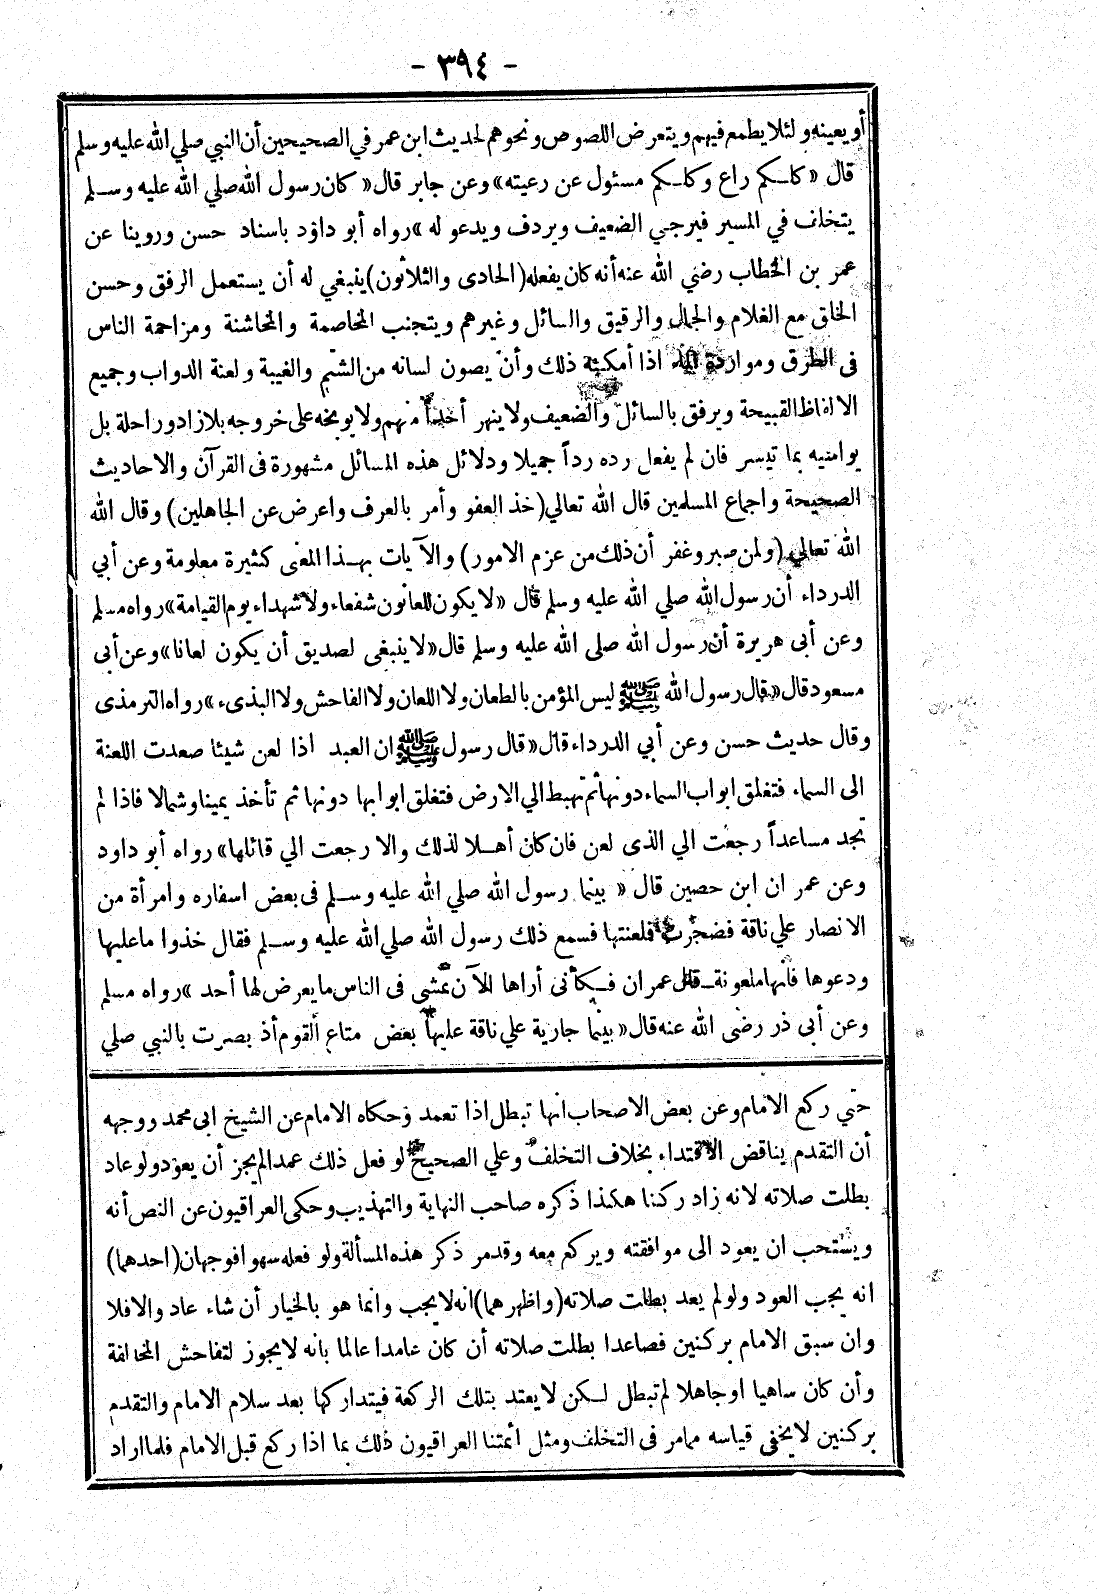 - ٣٩٤ -
أو يعينه ولئلا يطمع فيهم ويتعرض اللصوص ونحوهم لحديث ابن عمر في الصحيحين أن النبي صلي الله عليه وسلم
قال « كلكم راع وكلكم مسئول عن رعيته » وعن جابر قال « كان رسول الله صلي الله عليه وسلم
يتخلف في المسير فيرجي الضعيف ويردف ويدعو له » رواه أبو داؤد باسناد حسن وروينا عن
عمر بن الخطاب رضي الله عنه أنه كان يفعله (الحادى والثلاثون) ينبغي له أن يستعمل الرفق وحسن
الخلق مع الغلام والجمال والرقيق والسائل وغيرهم ويتجنب المخاصمة والمخاشنة ومزاحمة الناس
فى الطرق وموارد الماء اذا أمكنه ذلك وأن يصون لسانه من الشتم والغيبة ولعنة الدواب وجميع
الالفاظ القبيحة ويرفق بالسائل والضعيف ولا ينهر أحدا منهم ولا يوبخه على خروجه بلا زاد وراحلة بل
يوامنيه بما تيسر فان لم يفعل رده رداً جميلا ودلائل هذه المسائل مشهورة فى القرآن والاحاديث
الصحيحة واجماع المسلمين قال الله تعالي (خذ العفو وأمر بالعرف واعرض عن الجاهلين) وقال الله
الله تعالي (ولمن صبر وغفر أن ذلك من عزم الامور) والآيات بهذا المعنى كثيرة معلومة وعن أبي
الدرداء أن رسول الله صلي الله عليه وسلم قال « لا يكون للعانون شفعاء ولا شهداء يوم القيامة » رواه مسلم
وعن أبى هريرة أن رسول الله صلى الله عليه وسلم قال « لا ينبغى لصديق أن يكون لعانا » وعن أبى
مسعود قال « قال رسول الله ﷺ ليس المؤمن بالطعان ولا اللعان ولا الفاحش ولا البذىء » رواه الترمذى
وقال حديث حسن وعن أبي الدرداء قال « قال رسول ﷺ ان العبد اذا لعن شيئا صعدت اللعنة
الى السماء فتغلق ابواب السماء دونها ثم تهبط الي الارض فتغلق ابوابها دونها ثم تأخذ يمينا وشمالا فاذا لم
تجد مساعداً رجعت الي الذى لعن فان كان أهلا لذلك والا رجعت الي قائلها » رواه أبو داود
وعن عمر ان ابن حصين قال « بينما رسول الله صلي الله عليه وسلم فى بعض اسفاره وامرأة من
الانصار علي ناقة فضجرت فلعنتها فسمع ذلك رسول الله صلي الله عليه وسلم فقال خذوا ما عليها
ودعوها فأنها ملعونة قال عمران فكأنى أراها الآن تمشى فى الناس ما يعرض لها أحد » رواه مسلم
وعن أبى ذر رضى الله عنه قال « بينما جارية علي ناقة عليها بعض متاع القوم أذ بصرت بالنبي صلي
حتي ركع الامام وعن بعض الاصحاب انها تبطل اذا تعمد وحكاه الامام عن الشيخ ابى محمد ووجهه
أن التقدم يناقض الاقتداء بخلاف التخلف وعلي الصحيح لو فعل ذلك عمدا لم يجز أن يعود ولو عاد
بطلت صلاته لانه زاد ركنا هكذا ذكره صاحب النهاية والتهذيب وحكى العراقيون عن النص أنه
ويستحب ان يعود الى موافقته ويركع معه وقد مر ذكر هذه المسألة ولو فعله سهوا فوجهان (احدهما)
انه يجب العود ولو لم يعد بطلت صلاته (واظهرهما) انه لا يجب وانما هو بالخيار أن شاء عاد والا فلا
وان سبق الامام بركنين فصاعدا بطلت صلاته أن كان عامدا عالما بانه لا يجوز لتفاحش المخالفة
وأن كان ساهيا او جاهلا لم تبطل لكن لا يعتد بتلك الركعة فيتداركها بعد سلام الامام والتقدم
بركنين لا يخفى قياسه مما مر فى التخلف ومثل ائمتنا العراقيون ذلك بما اذا ركع قبل الامام فلما اراد